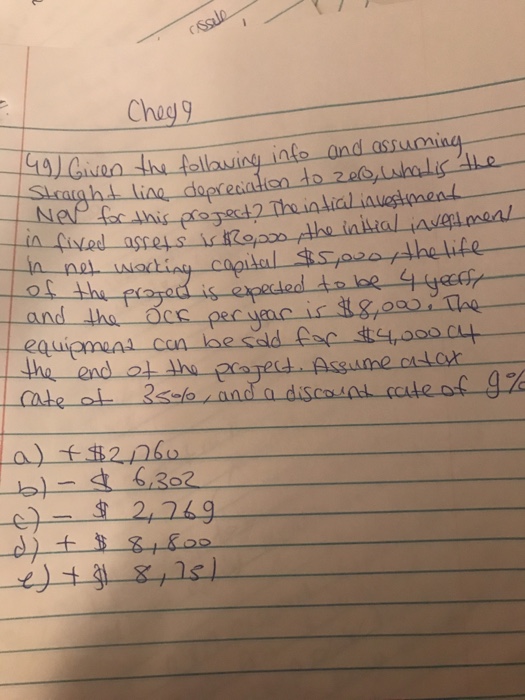 Chegg
49) Given the following info and assuming
straight line depreciation to zero, what is the
NPV for this project? The intial investment
in fixed assets is $20,000, the initial investment
in net working capital $5,000, the life
of the project is expected to be 4 years,
and the OCF per year is $8,000. The
equipment can be sold for $4,000 at
the end of the project. Assume a tax
rate of 35%, and a discount rate of 9%
a) + $2,760
b) - $ 6,302
c) - $ 2,769
d) + $ 8,800
e) + $ 8,751